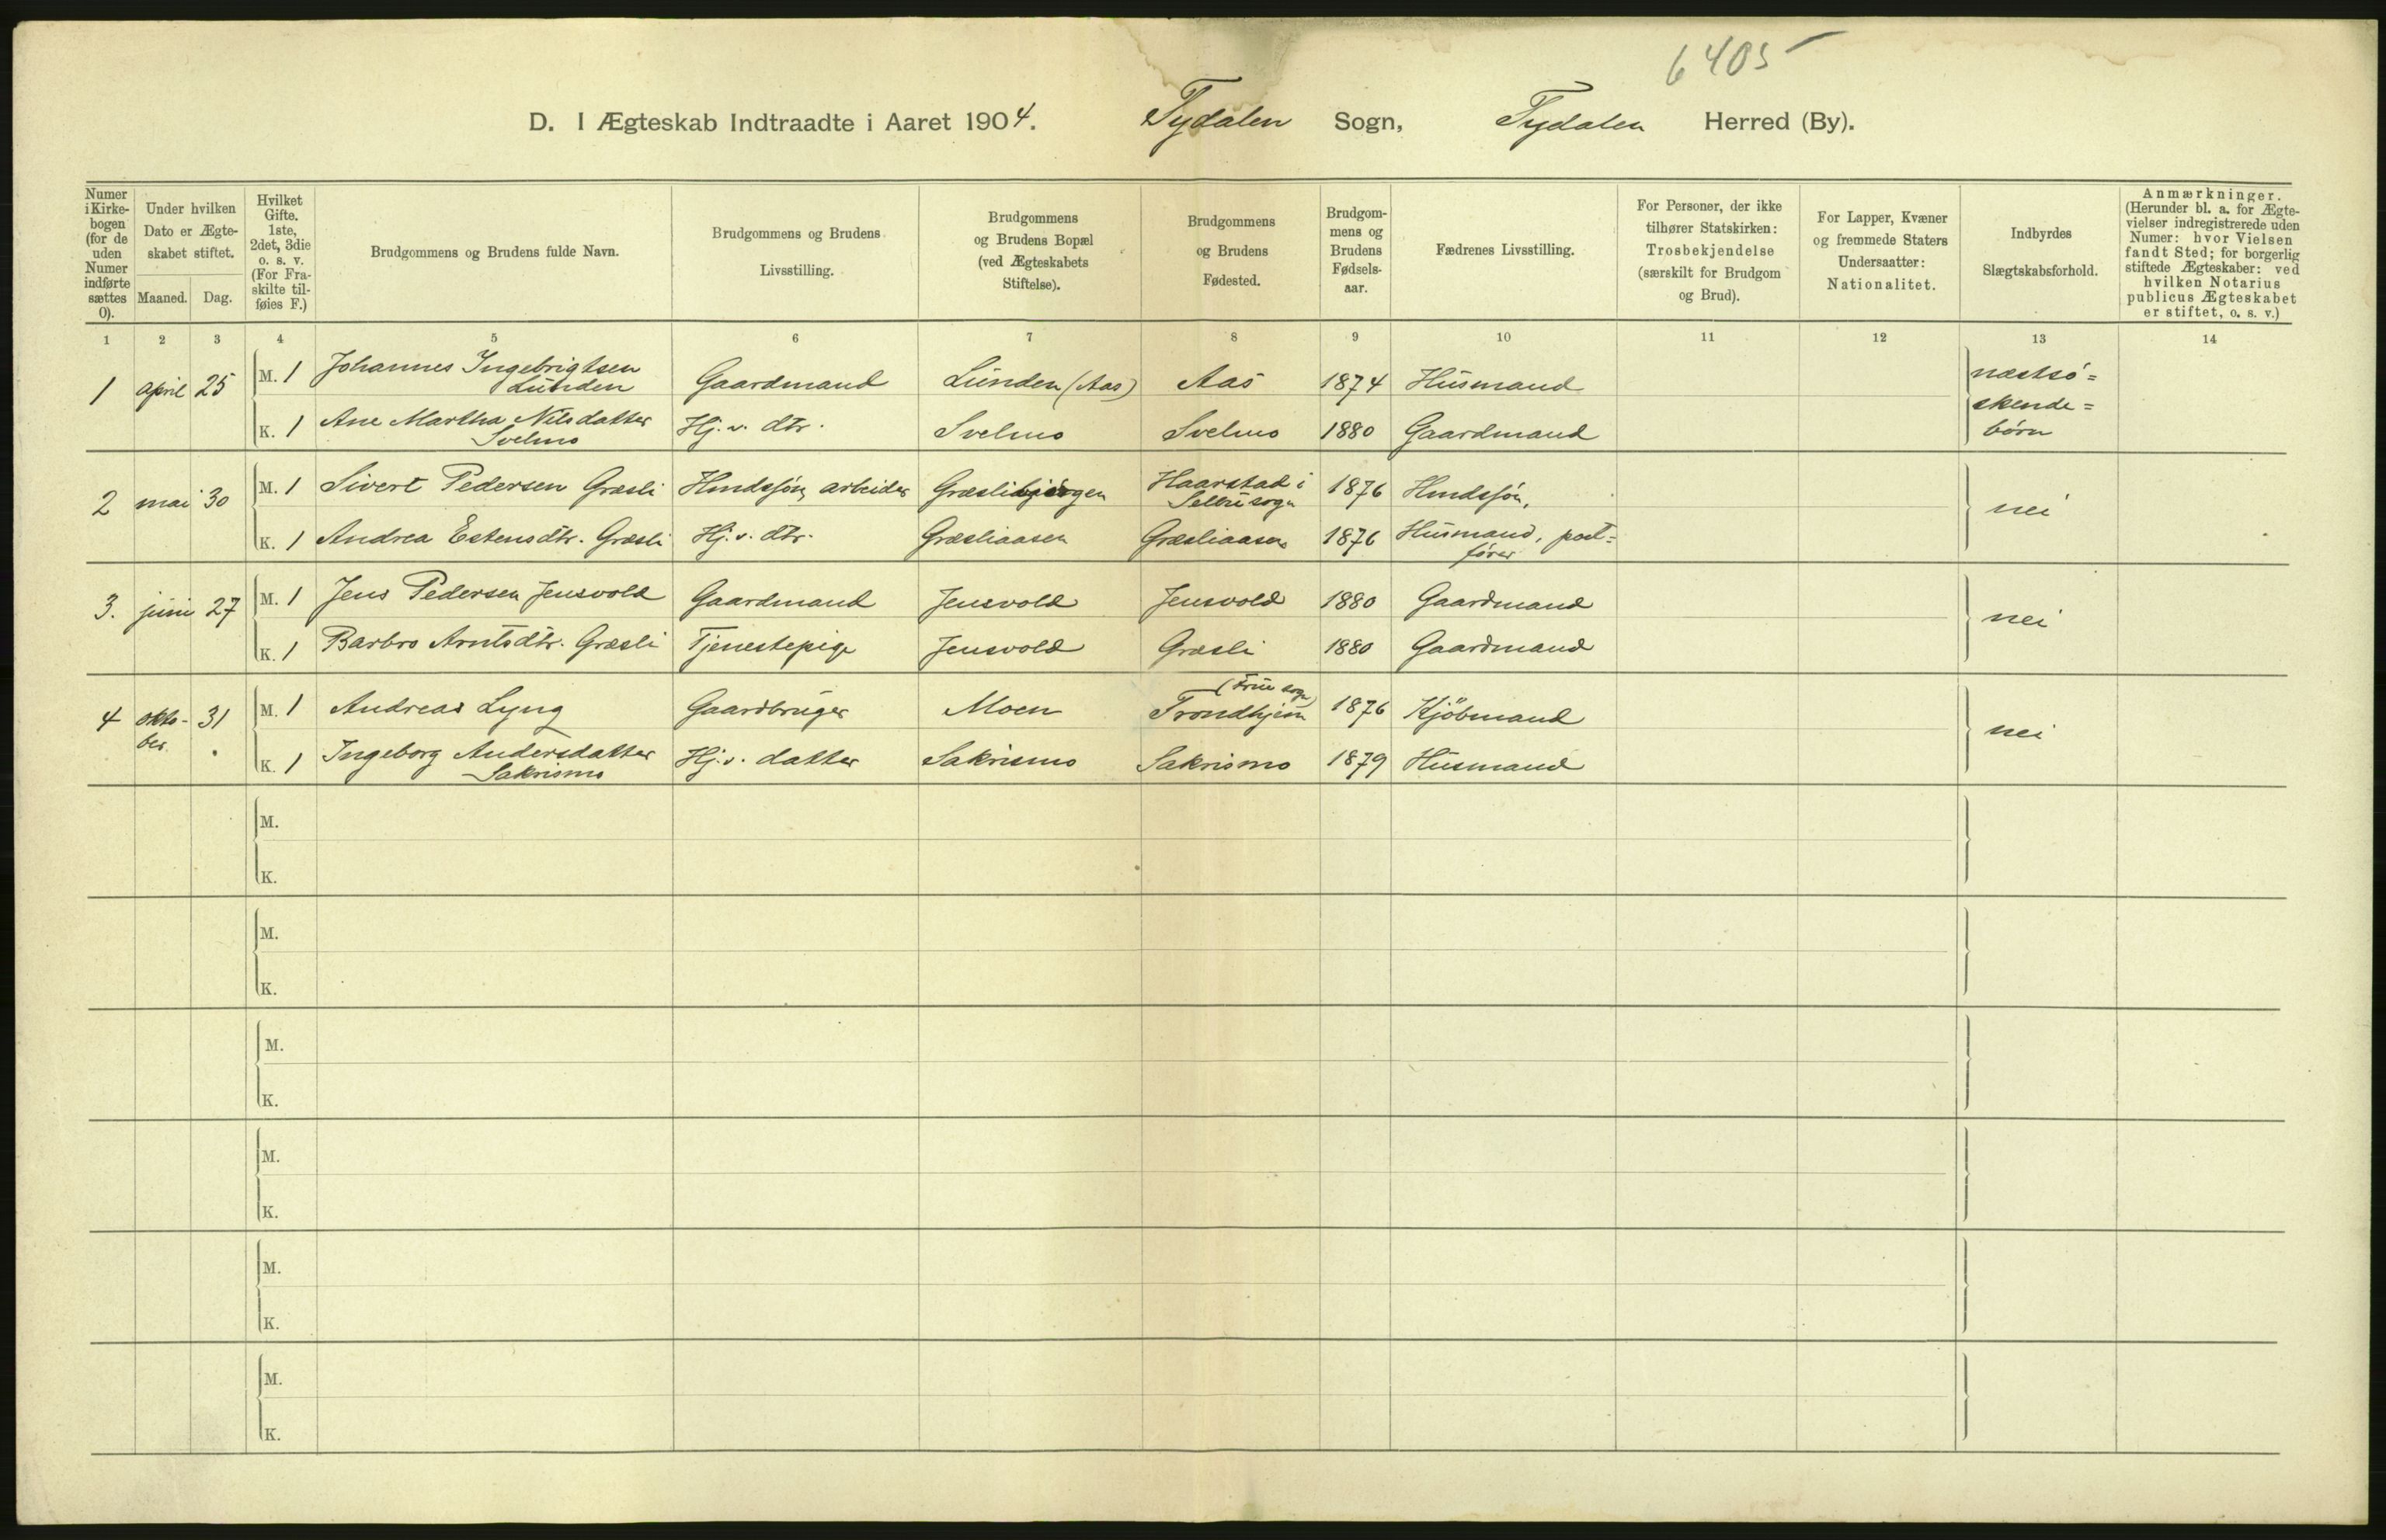 6405
D. I Ægteskab Indtraadte i Aaret 1904. Tydalen Sogn, Tydalen Herred (By).
Numer i Kirke- bogen (for de uden Numer indførte sættes 0).
Under hvilken Dato er Ægte- skabet stiftet.
Maaned. Dag.
Hvilket Gifte. 1ste, 2det, 3die o. s. v. (For Fra- skilte til- føies F.)
Brudgommens og Brudens fulde Navn.
Brudgommens og Brudens Livsstilling.
Brudgommens og Brudens Bopæl (ved Ægteskabets Stiftelse).
Brudgommens og Brudens Fødested.
Brudgom- mens og Brudens Fødsels- aar.
Fædrenes Livsstilling.
For Personer, der ikke tilhører Statskirken: Trosbekjendelse (særskilt for Brudgom og Brud).
For Lapper, Kvæner og fremmede Staters Undersaatter: Nationalitet.
Indbyrdes Slægtskabsforhold.
Anmærkninger. (Herunder bl. a. for Ægte- vielser indregistrerede uden Numer: hvor Vielsen fandt Sted; for borgerlig stiftede Ægteskaber: ved hvilken Notarius publicus Ægteskabet er stiftet, o. s. v.)
1 2 3 4 5 6 7 8 9 10 11 12 13 14
1 april 25 M. 1 Johannes Ingebrigtsen Lunden Gaardmand Lunden (Aas) Aas 1874 Husmand næstsø= skende= børn
K. 1 Ane Martha Nilsdatter Svelmo Hj. v. dtr. Svelmo Svelmo 1880 Gaardmand
2 mai 30 M. 1 Sivert Pedersen Græsli Hmdssøn, arbeider Græslibjørgen Haarstad i Selbu sogn 1876 Hmdssøn. nei
K. 1 Andrea Estensdtr. Græsli Hj. v. dtr. Græsliaasen Græsliaasen 1876 Husmand, post= fører
3. juni 27 M. 1 Jens Pedersen Jensvold Gaardmand Jensvold Jensvold 1880 Gaardmand nei
K. 1 Barbro Arntsdtr. Græsli Tjenestepige Jensvold Græsli 1880 Gaardmand
4 okto- ber 31 M. 1 Andreas Lyng Gaardbruger Moen Trondhjem (Frue sogn) 1876 Kjöbmand nei
K. 1 Ingeborg Andersdatter Sakrismo Hj. v. datter Sakrismo Sakrismo 1879 Husmand
M.
K.
M.
K.
M.
K.
M.
K.
M.
K.
M.
K.